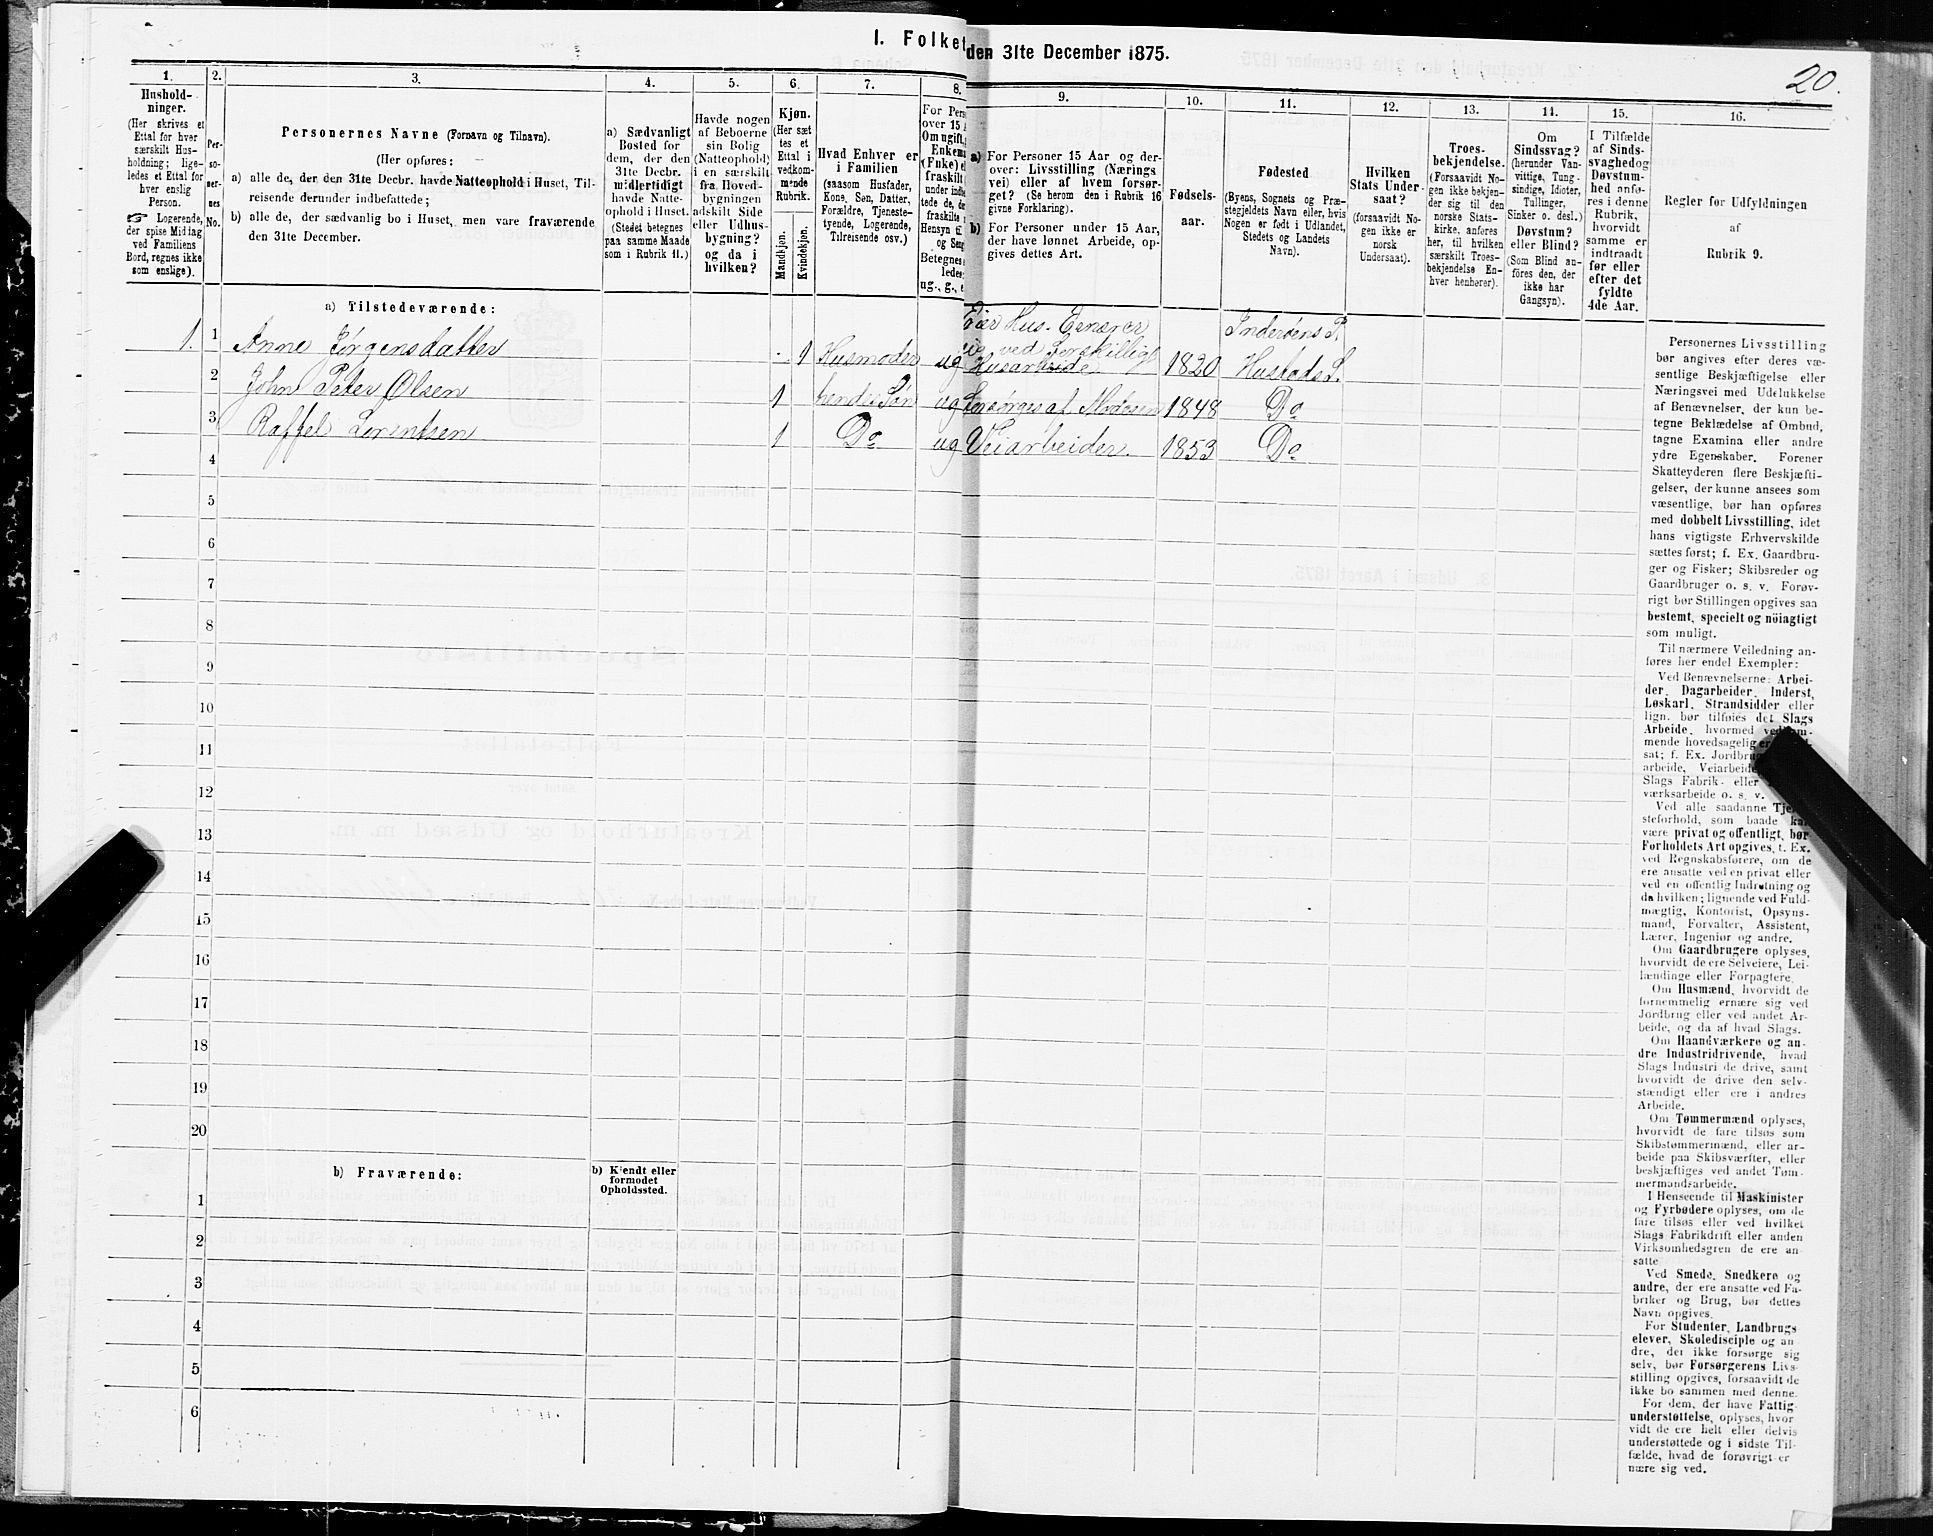 I. Folket
den 31te December 1875.
20.
1.
Hushold-
ninger.
(Her skrives et
Ettal for hver
særskilt Hus-
holdning; lige-
ledes et Ettal for
hver enslig
Person.
Logerende,
der spise Middag
ved Familiens
Bord, regnes ikke
som enslige).
2.
Per-
so-
ner-
nes
No.
3.
Personernes Navne (Fornavn og Tilnavn).
(Her opføres:
a) alle de, der den 31te Decbr. havde Natteophold i Huset, Til-
reisende derunder indbefattede;
b) alle de, der sædvanlig bo i Huset, men vare fraværende
den 31te December.
4.
a) Sædvanligt
Bosted for
dem, der den
31te Decbr.
midlertidigt
havde Natte-
ophold i Huset.
(Stedet betegnes
paa samme Maade
som i Rubrik 11.)
5.
Havde nogen
af Beboerne
sin Bolig
(Natteophold)
i en særskilt
fra Hoved-
bygningen
adskilt Side
eller Udhus-
bygning?
og da i
hvilken?
6.
Kjøn.
(Her sæt
tes et
Ettal i
vedkom-
mende
Rubrik.
Mandkjøn.
Kvindekjøn.
7.
Hvad Enhver er
i Familien
(saasom Husfader,
Kone, Søn, Datter,
Forældre, Tjeneste-
tyende, Logerende,
Tilreisende osv.)
8.
For Pers
over 15 A
Om ugift,
Enkema
(Enke) e
fraskilt
under indbe
tede de, de
fraskilte
Hensyn ti
og Seng
Betegnes
ledes:
ug., g., e
9.
a) For Personer 15 Aar og der-
over: Livsstilling (Nærings
vei) eller af hvem forsør-
get? (Se herom den i Rubrik 16
givne Forklaring).
b) For Personer under 15 Aar,
der have lønnet Arbeide, op-
gives dettes Art.
10.
Fødsels-
aar.
11.
Fødested
(Byens, Sognets og Præ-
stegjeldets Navn eller, hvis
Nogen er født i Udlandet,
Stedets og Landets
Navn).
12.
Hvilken
Stats Under-
saat?
(forsaavidt No-
gen ikke er
norsk
Undersaat).
13.
Troes-
bekjendelse.
(Forsaavidt No-
gen ikke bekjen-
der sig til den
norske Stats-
kirke, anføres
her, til hvilken
særskilt Troes-
bekjendelse En-
hver henhører).
14.
Om
Sindssvag?
(herunder Van-
vittige, Tung-
sindige, Idioter,
Tullinger,
Sinker o. desl.)
Døvstum?
eller Blind?
(Som Blind an-
føres den, der
ikke har
Gangsyn).
15.
I Tilfælde
af Sinds-
svaghed og
Døvstum-
hed anfø-
res i denne
Rubrik,
hvorvidt
samme er
indtraadt
før eller
efter det
fyldte
4de Aar.
16.
Regler for Udfyldningen
af
Rubrik 9.
a) Tilstedeværende:
1. 1 Anne Jørgensdatter 1 Husmoder ug Eier Hus. Ernærer
sig ved forskilligt
Husarbeide 1820 Inderøens P.
Hustads S.
2 John Peter Olsen 1 hendes Søn ug Forsørges af Moderen 1848 Do
3 Raffel Lorentsen 1 Do ug Veiarbeider. 1853 Do
4
5
6
7
8
9
10
11
12
13
14
15
16
17
18
19
20
b) Fraværende:
b) Kjendt eller
formodet
Opholdssted.
1
2
3
4
5
6
Personernes Livsstilling
bør angives efter deres væ-
sentlige Beskjæftigelse eller
Næringsvei med Udelukkelse
af Benævnelser, der kun be-
tegne Beklædelse af Ombud,
tagne Examina eller andre
ydre Egenskaber. Forener
Skatteyderen flere Beskjæfti-
gelser, der kunne ansees som
væsentlige, bør han opføres
med dobbelt Livsstilling, idet
hans vigtigste Erhvervskilde
sættes først; f. Ex. Gaardbru-
ger og Fisker; Skibsreder og
Gaardbruger o. s. v. Forøv-
rigt bør Stillingen opgives saa
bestemt, specielt og nöiagtigt
som muligt.
Til nærmere Veiledning an-
føres her endel Exempler:
Ved Benævnelserne: Arbei-
der, Dagarbeider, Inderst,
Løskarl, Strandsidder eller
lign. bør tilføies det Slags
Arbeide, hvormed
mende hovedsagelig er
sat; f. Ex.
arbeide,
Slags Fabrik- eller
værksarbeide o. s. v.
Ved alle saadanne
steforhold, som baade
være privat og offentligt, bør
Forholdets Art opgives, f. Ex.
ved Regnskabsførere, om de
ere ansatte ved en privat eller
ved en offentlig Indretning og
da hvilken; lignende ved Fuld-
mægtig, Kontorist, Opsyns-
mand, Forvalter, Assistent,
Lærer, Ingeniør og andre.
Om Gaardbrugere oplyses,
hvorvidt de ere Selveiere, Lei-
lændinge eller Forpagtere.
Om Husmænd, hvorvidt de
fornemmelig ernære sig ved
Jordbrug eller ved andet Ar-
beide, og da af hvad Slags.
Om Haandværkere og an-
dre Industridrivende, hvad
Slags Industri de drive, samt
hvorvidt de drive den selv-
stændigt eller ere i andres
Arbeide.
Om Tømmermænd oplyses,
hvorvidt de fare tilsøs som
Skibstømmermænd, eller ar-
beide paa Skibsværfter, eller
beskjæftiges ved andet Tøm-
mermandsarbeide.
I Henseende til Maskinister
og Fyrbødere oplyses, om de
fare tilsøs eller ved hvilket
Slags Fabrikdrift eller anden
Virksomhedsgren de ere an-
satte
Ved Smede, Snedkere og
andre, der ere ansatte ved Fa-
briker og Brug, bør dettes
Navn opgives.
For Studenter, Landbrugs
elever, Skoledisciple og an
dre, der ikke forsørge sig
selv, bør Forsørgerens Livs-
stilling opgives, forsaavidt de
ikke bo sammen med denne.
For dem, der have Fattig-
understøttelse, oplyses, hvor
vidt de ere helt eller delvis
understøttede og i sidste Til-
fælde, hvad de forøvrigt er
nære sig ved.